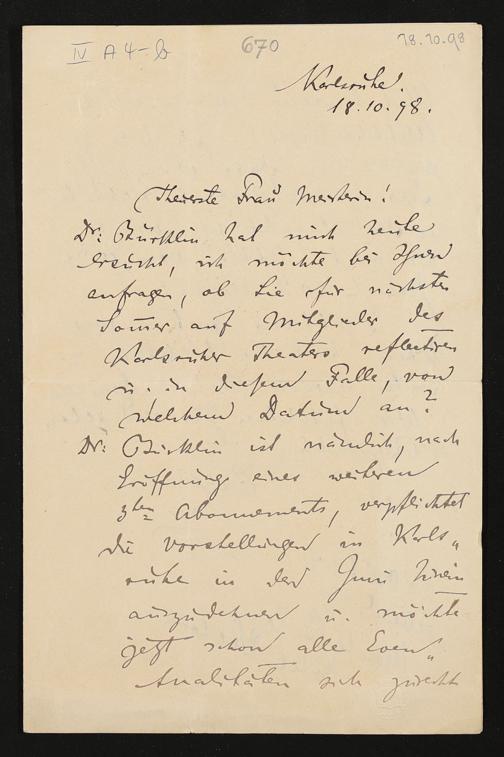 IV A 4-b 670 18.10.98
Karlsruhe.
18.10.98.
Theuerste Frau Meisterin!
Dr: Bürklin hat mich heute
ersucht, ich möchte bei Ihnen
anfragen, ob Sie für nächsten
Som̅er auf Mitglieder des
Karlsruher Theaters reflectiren
u. in diesem Falle, von
welchem Datum an?
Dr: Bürklin ist nämlich, nach
Eröffnung eines weiteren
3ten Abonnements, verpflichtet
die Vorstellungen in Karls„
ruhe in den Juni hinein
auszudehnen u. möchte
jetzt schon alle Even„
tualitäten sich zurecht